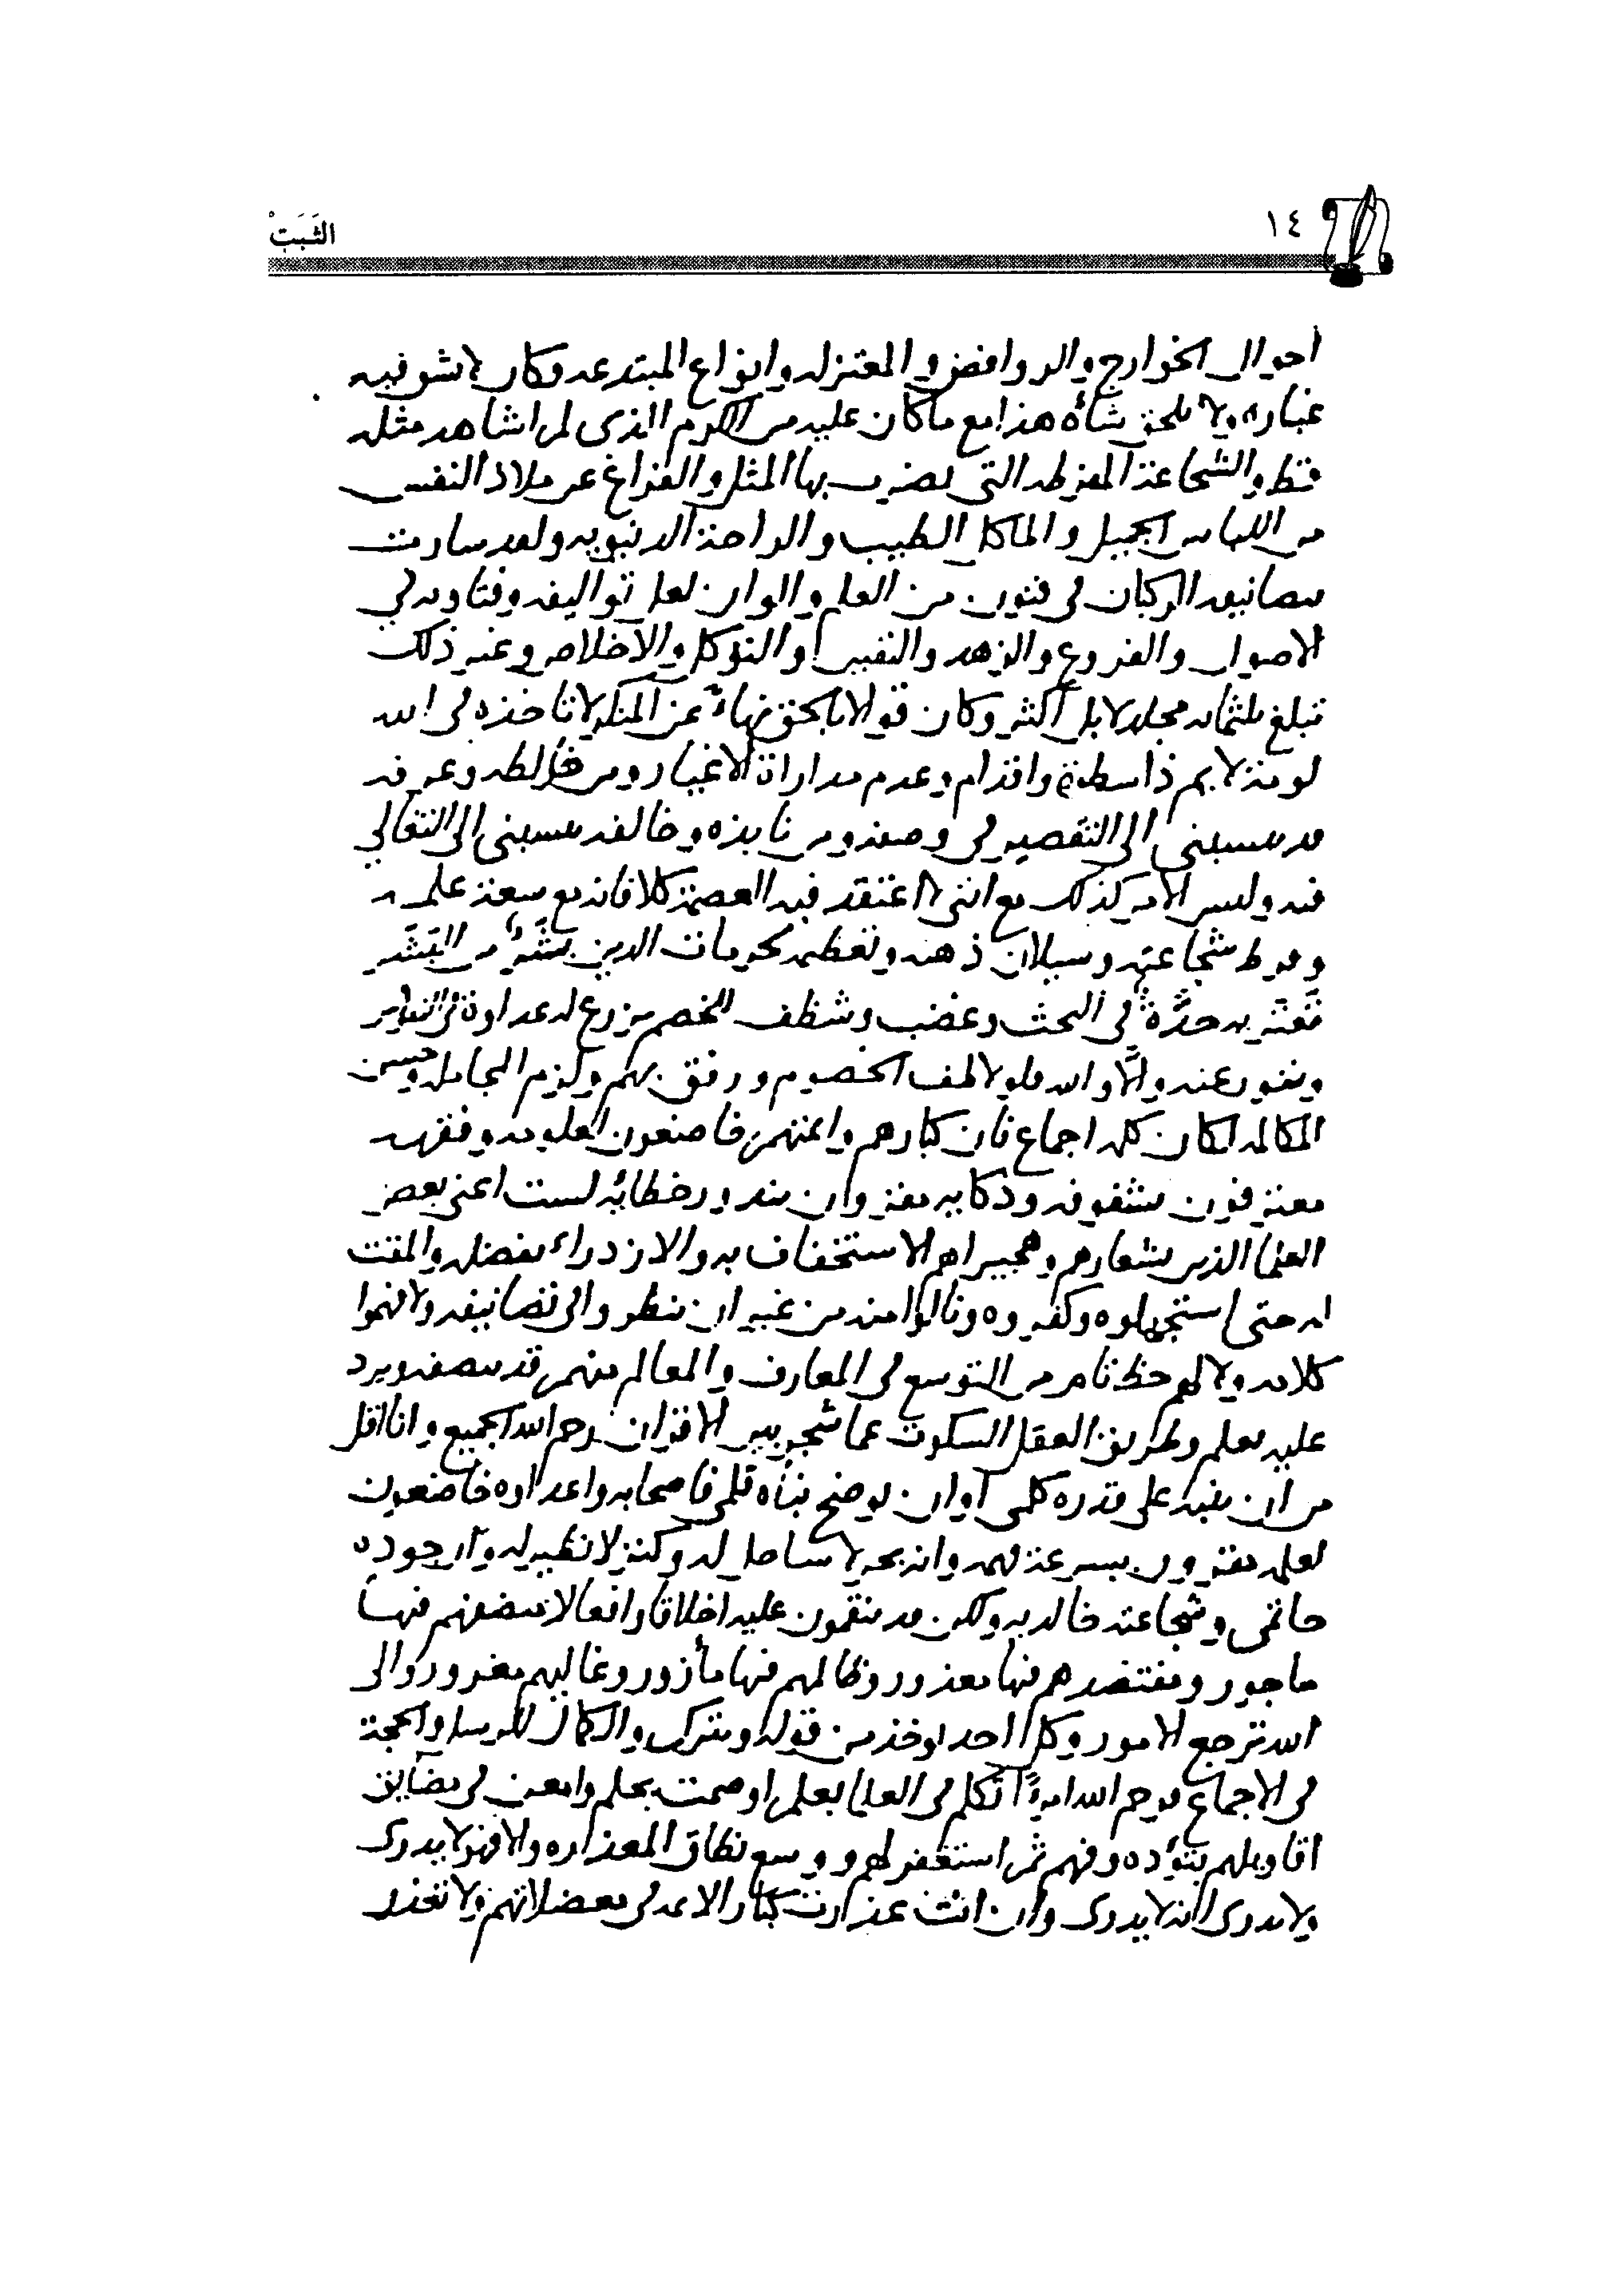 ١٤
الثَّبَتْ
احوال الخوارج والروافض والمعتزله وانواع المبتدعه وكان لا يشق فيه
غباره ولا يلحق شأه هذا مع ما كان عليه من الكرم الذى لم اشاهد مثله
قط والشجاعة المفرطه التى يضرب بها المثل والفراغ عن ملاذ النفس
من اللباس الجميل والماكل الطيب والراحة الدنيويه ولقد سارت
بتصانيفه الركبان فى فنون من العلم والوان لعل تواليفه وفتاويه فى
الاصول والفروع والزهد والتفسير والتوكل والاخلاص وغير ذلك
تبلغ ثلثمايه مجلد لا بل اكثر وكان قوالا بالحق نهاء عن المنكر لا تاخذه فى الله
لومة لايم ذا سطوة واقدام وعدم مداراة الاغيار ومن خالطه وعرفه
قد ينسبنى الى التقصير فى وصفه ومن نابذه وخالفه ينسبنى الى التغالي
فيه وليس الامر كذلك مع اننى لا اعتقد فيه العصمة كلا فانه مع سعة علمه
وفرط شجاعته وسيلان ذهنه وتعظيمه لحرمات الدين بشَر من البَشَر
تَعتَريه حدَّة فى البحث وغضب وشظف للخصم يزرع له عداوة فى النفوس
ونفور عنه وإلَّا والله فلو لاطف الخصوم ورفق بهم ولزم المجامله وحسن
المكالمه لكان كلمه اجماع فان كبارهم وائمتهم خاضعون لعلومه وفقهه
معترفون بشفوفه وذكايه مقرون بندور خطائه لست اعنى بعض
العلما الذين شعارهم وهجيراهم الاستخفاف به والازدراء بفضله والمقت
له حتى استجهلوه وكفروه ونالوا منه من غير ان ينظروا فى تصانيفه ولا فهموا
كلامه ولا لهم حظ تام من التوسع فى المعارف والعالم منهم قد ينصفه ويرد
عليه بعلم وطريق العقل السكوت عما شجر بين الاقران رحم الله الجميع وانا اقل
من ان ينبه على قدره كلمى او ان يوضح نبأه قلمى فاصحابه واعداوه خاضعون
لعلمه مقرون بسرعة فهمه وانه بحر لا ساحل له وكنز لا نظير له وان جوده
حاتمى وشجاعته خالديه ولكن قد ينقمون عليه اخلاقا وافعالا منصفهم فيها
ماجور ومقتصدهم فيها معذور وظالمهم فيها مأزور وغاليهم مغرور والى
الله ترجع الامور وكل احد يوخذ من قوله ويترك والكمال للرسل والحجة
فى الاجماع فرحم الله امرءاً تكلم فى العلما بعلم او صمت بحلم وامعن فى مضايق
اقاويلهم بتؤده وفهم ثم استغفر لهم ووسع نطاق المعذره والا فهو لا يدرى
ولا يدرى انه لا يدرى وان انت عذرت كبار الائمه فى معضلاتهم ولا تعذر